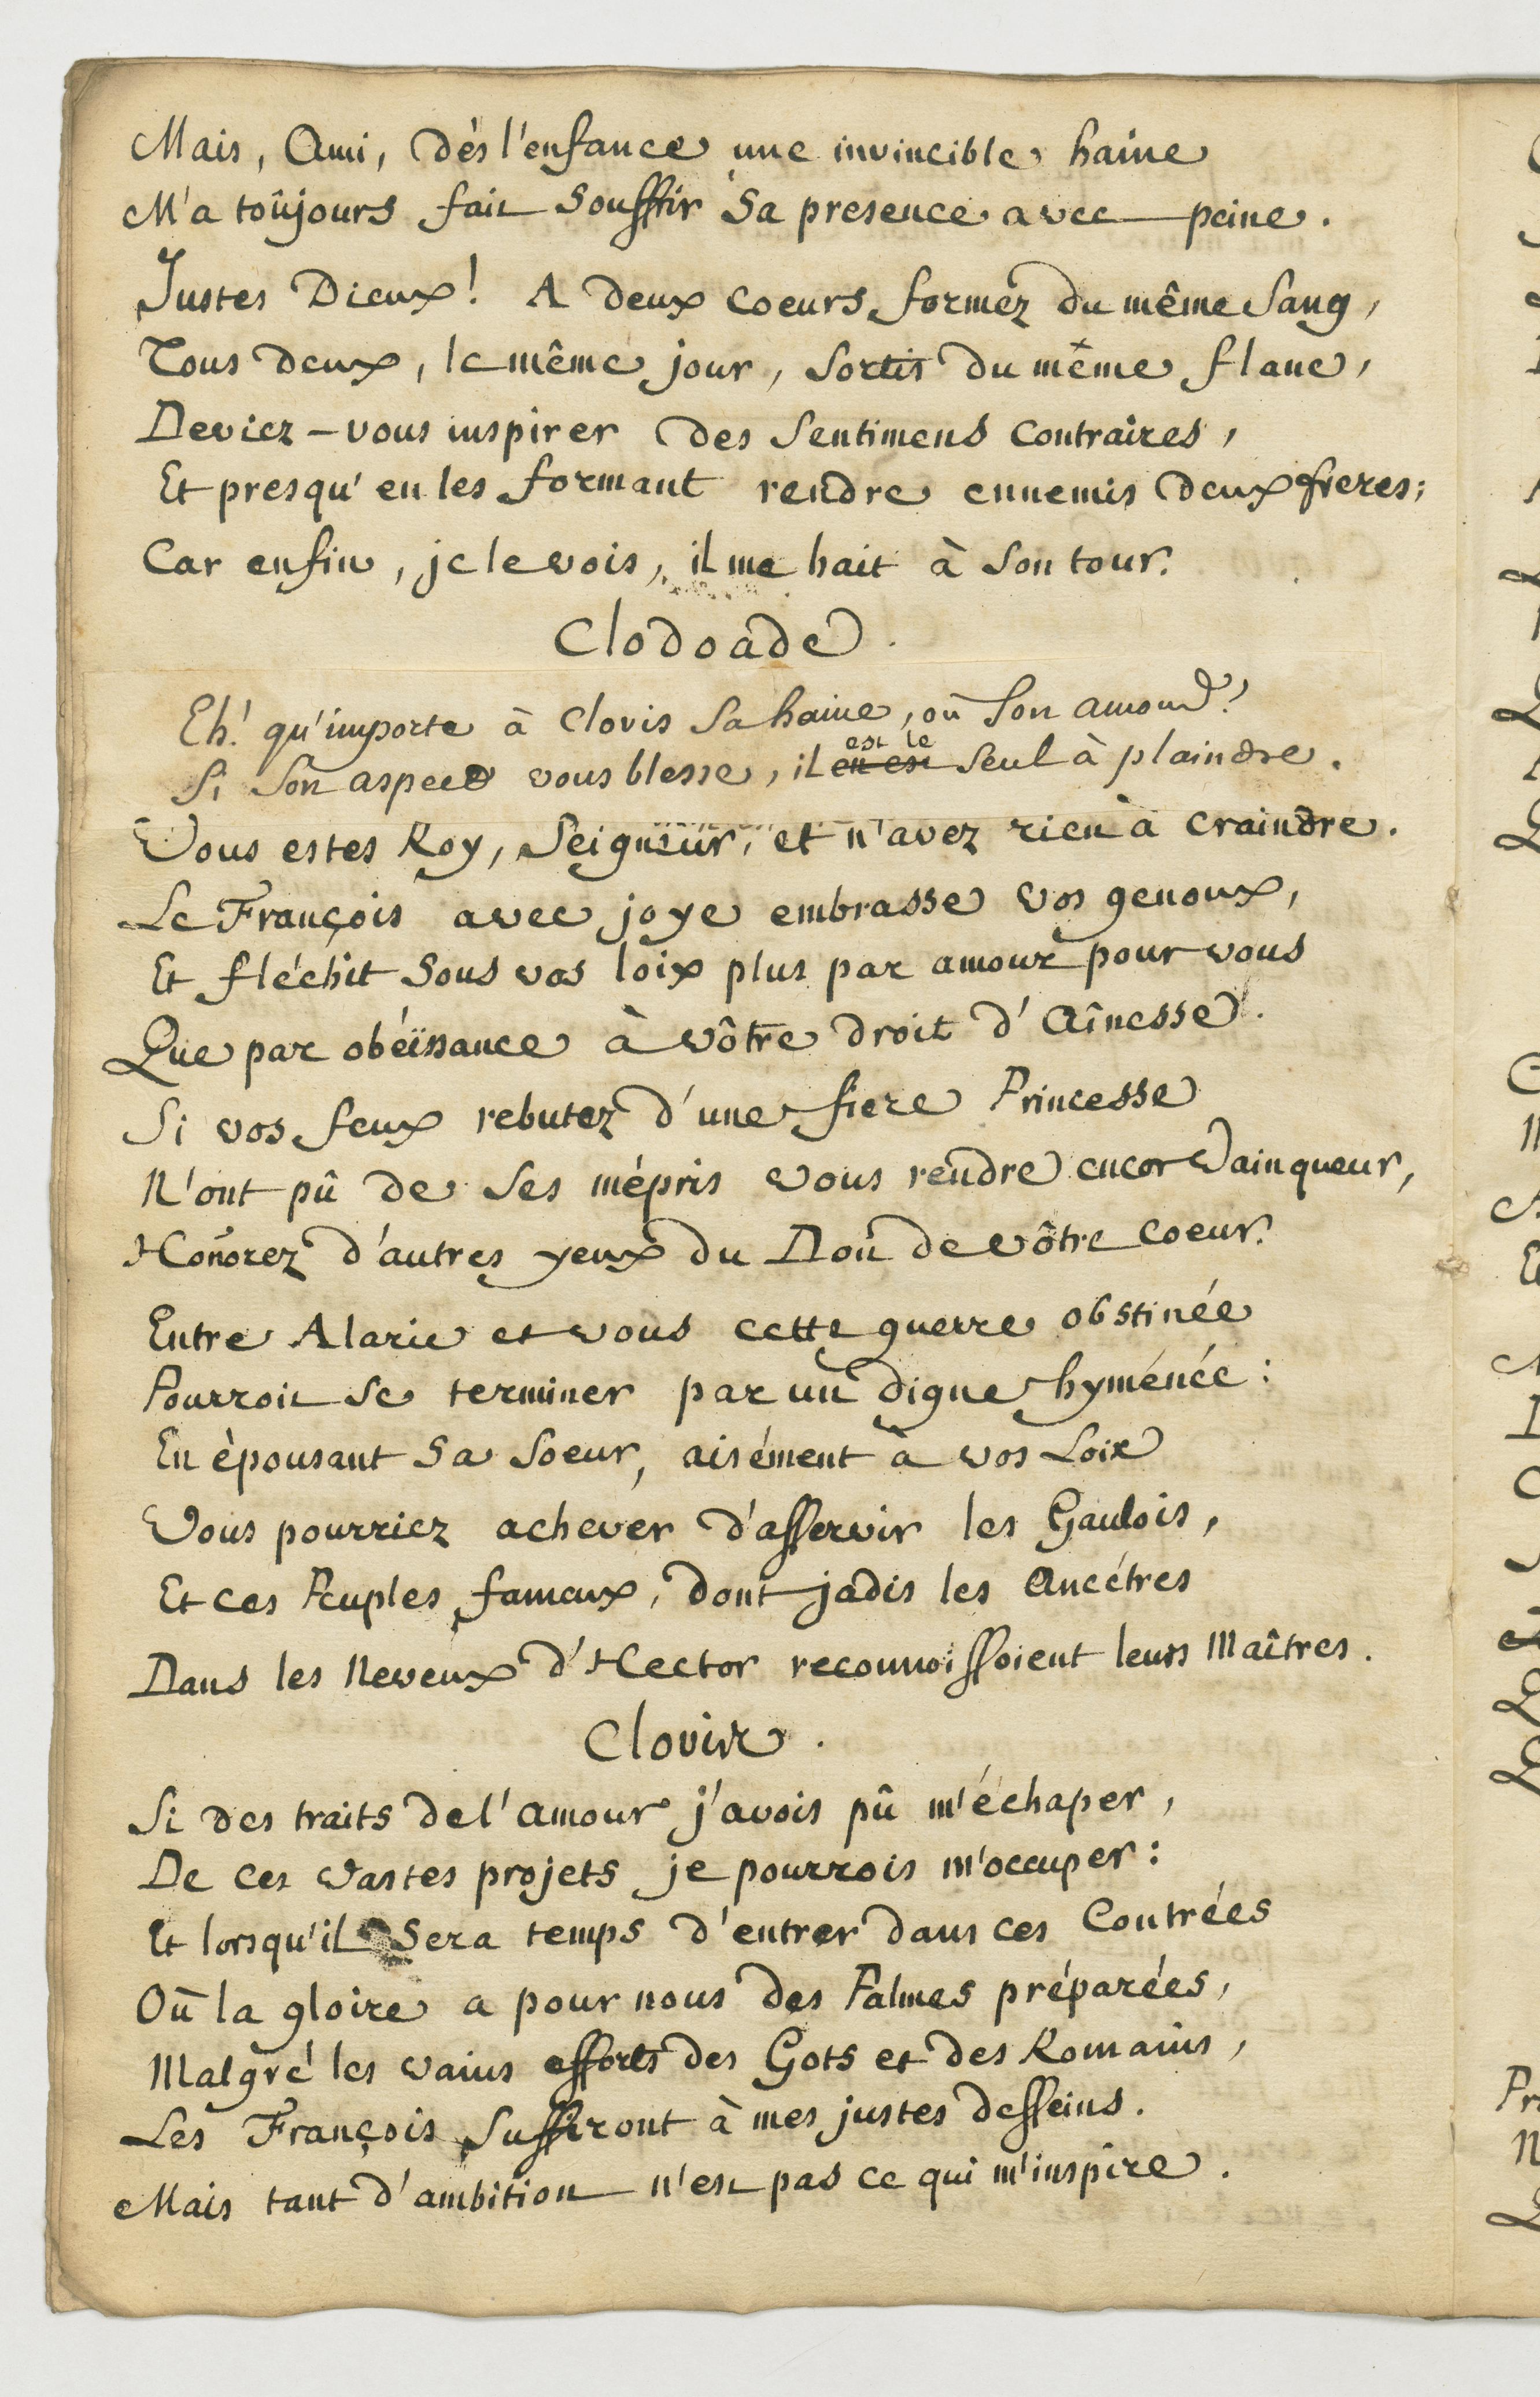 Mais, Ami, dés l'enfance une invincible haine
M'a toûjours fait souffrir sa presence avec peine.
Justes Dieux! A deux coeurs formez du même sang,
Tous deux, le même jour, sortis du même flanc,
Deviez-vous inspirer des sentimens contraires,
Et presqu'en les formant rendre ennemis deux freres;
Car enfin, je le vois, il me hait à son tour.
Clodoade.
Eh! qu'importe à Clovis sa haine, où son amour?
est le
Si son aspect vous blesse, il en est seul à plaindre.
Vous estes Roy, Seigneur, et n'avez rien à craindre.
Le François avec joye embrasse vos genoux,
Et fléchit sous vos loix plus par amour pour vous
Que par obéïssance à vôtre droit d'Aînesse.
Si vos feux rebutez d'une fiere Princesse
N'ont pû de ses mépris vous rendre encor vainqueur,
Honorez d'autres yeux du Don de vôtre coeur.
Entre Alaric et vous cette guerre obstinée
Pourroit se terminer par un digne hyménée:
En èpousant sa soeur, aisément à vos Loix
Vous pourriez achever d'asservir les Gaulois,
Et ces Peuples fameux, dont jadis les Ancétres
Dans les Neveux d'Hector reconnoissoient leurs Maîtres.
Clovis.
Si des traits de l'amour j'avois pû m'échaper,
De ces vastes projets je pourrois m'occuper:
Et lorsqu'il sera temps d'entrer dans ces Contrées
Où la gloire a pour nous des Palmes préparées,
Malgré les vains efforts des Gots et des Romains,
Les François suffiront à mes justes desseins.
Mais tant d'ambition n'est pas ce qui m'inspire.